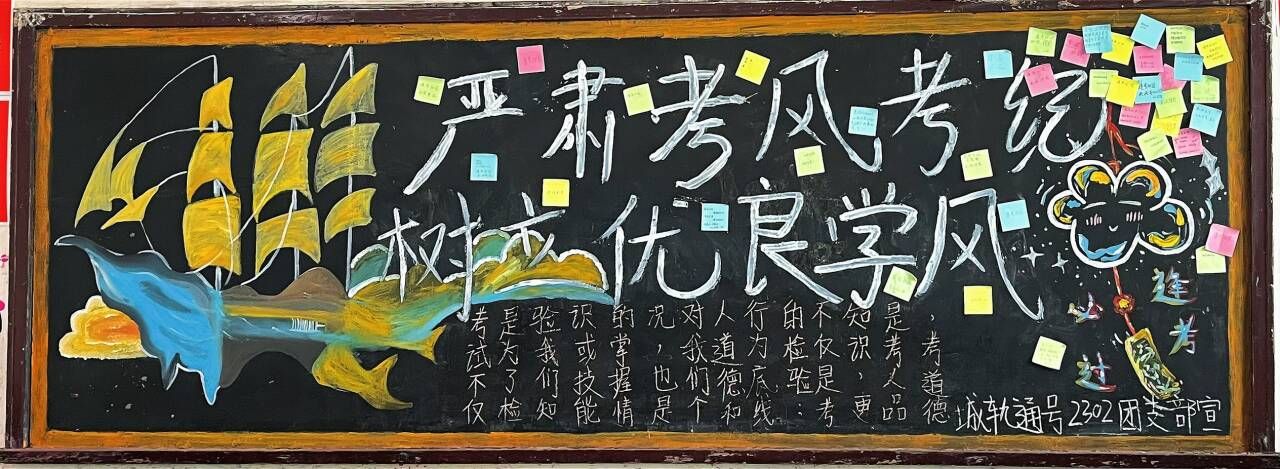 严肃考风考纪
树立优良学风
考试不仅
是为了检
验我们知
识或技能
的掌握情
况，也是
对我们个
人道德和
行为底线
的检验：
不仅是考
知识，更
是考人品
，考道德
逢考
必过
城轨通号2302团支部宣